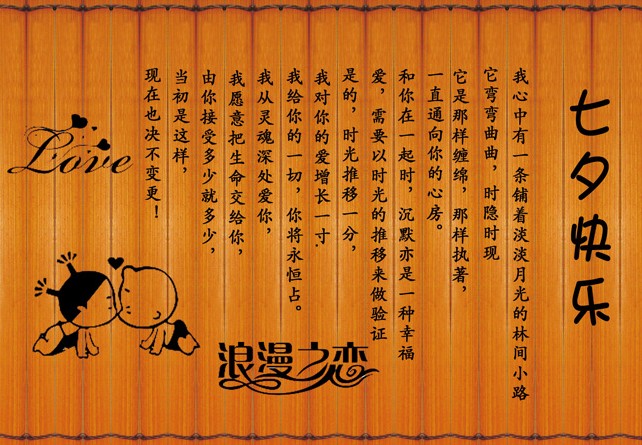 七夕快乐
我心中有一条铺着淡淡月光的林间小路
它弯弯曲曲，时隐时现
它是那样缠绵，那样执著，
一直通向你的心房。
和你在一起时，沉默亦是一种幸福
爱，需要以时光的推移来做验证
是的，时光推移一分，
我对你的爱增长一寸.
我给你的一切，你将永恒占。
我从灵魂深处爱你，
我愿意把生命交给你，
由你接受多少就多少，
当初是这样，
现在也决不变更！
Love
浪漫之恋